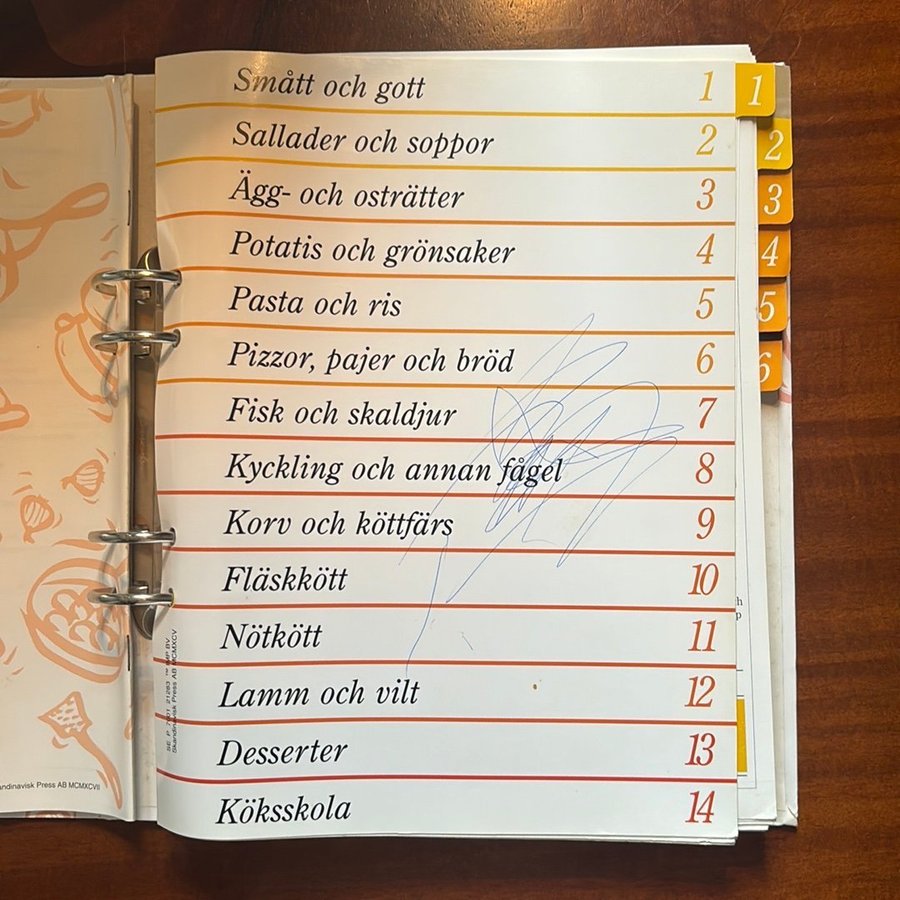 Smått och gott 1
Sallader och soppor 2
Ägg- och osträtter 3
Potatis och grönsaker 4
Pasta och ris 5
Pizzor, pajer och bröd 6
Fisk och skaldjur 7
Kyckling och annan fågel 8
Korv och köttfärs 9
Fläskkött 10
Nötkött 11
Lamm och vilt 12
Desserter 13
Köksskola 14
1
2
3
4
5
6
SE P 7801 21283 ™ IMP BV
Skandinavisk Press AB MCMXCV
Press AB MCMXCVII